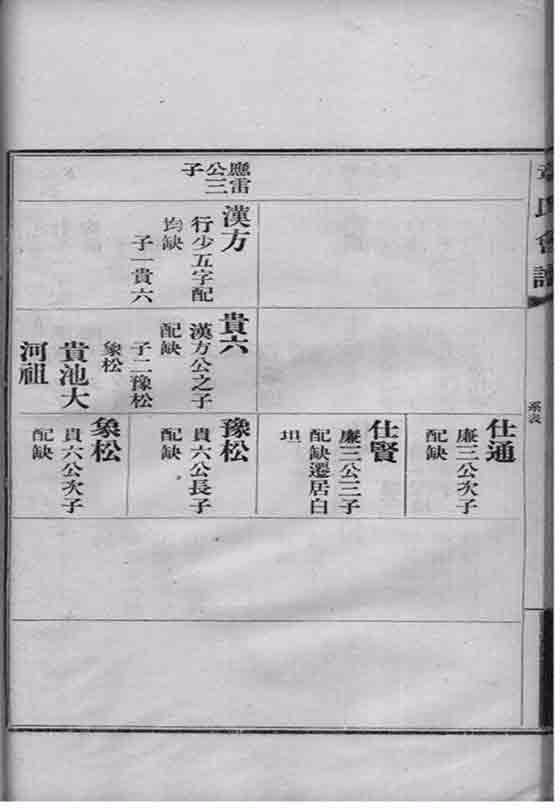 章氏會譜
系表
應雷
公三
子
漢方
行少五字配
均缺
子一貴六
貴六
漢方公之子
配缺
子二豫松
象松
貴池大
河祖
仕通
廉三公次子
配缺
仕賢
廉三公三子
配缺遷居白
坦
豫松
貴六公長子
配缺
象松
貴六公次子
配缺